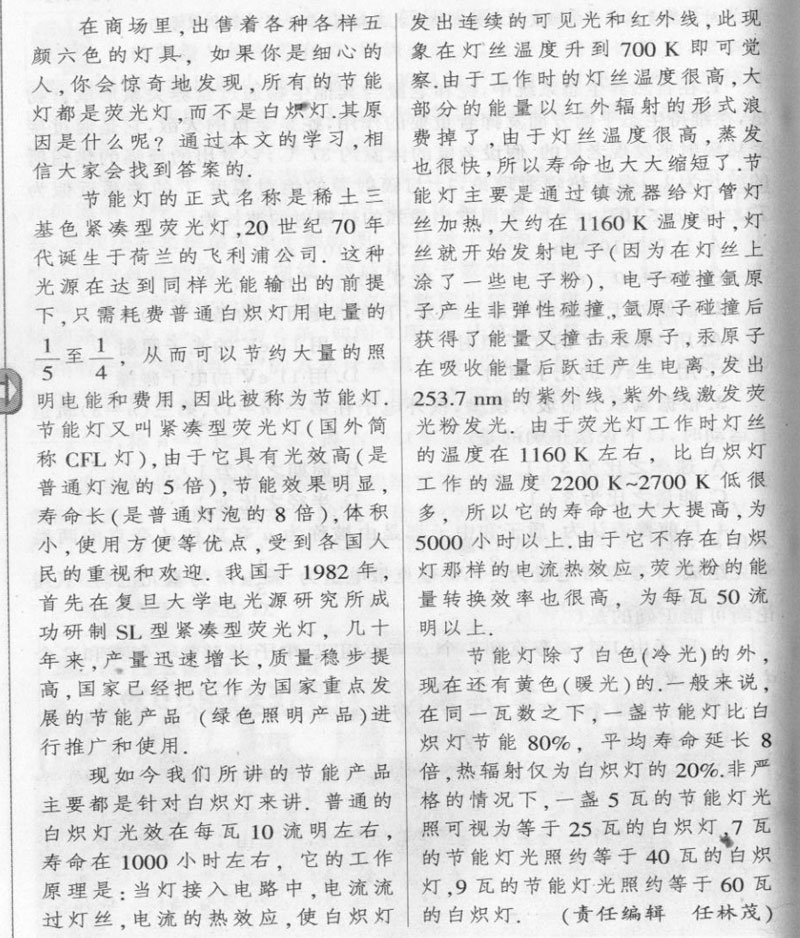 在商场里,出售着各种各样五
颜六色的灯具, 如果你是细心的
人,你会惊奇地发现,所有的节能
灯都是荧光灯,而不是白炽灯.其原
因是什么呢? 通过本文的学习,相
信大家会找到答案的.
节能灯的正式名称是稀土三
基色紧凑型荧光灯,20 世纪 70 年
代诞生于荷兰的飞利浦公司. 这种
光源在达到同样光能输出的前提
下,只需耗费普通白炽灯用电量的
1/5 至 1/4, 从而可以节约大量的照
明电能和费用,因此被称为节能灯.
节能灯又叫紧凑型荧光灯(国外简
称 CFL 灯),由于它具有光效高(是
普通灯泡的 5 倍),节能效果明显,
寿命长(是普通灯泡的 8 倍),体积
小,使用方便等优点,受到各国人
民的重视和欢迎. 我国于 1982 年,
首先在复旦大学电光源研究所成
功研制 SL 型紧凑型荧光灯, 几十
年来,产量迅速增长,质量稳步提
高,国家已经把它作为国家重点发
展的节能产品 (绿色照明产品)进
行推广和使用.
现如今我们所讲的节能产品
主要都是针对白炽灯来讲. 普通的
白炽灯光效在每瓦 10 流明左右,
寿命在 1000 小时左右, 它的工作
原理是:当灯接入电路中,电流流
过灯丝,电流的热效应,使白炽灯
发出连续的可见光和红外线,此现
象在灯丝温度升到 700 K 即可觉
察.由于工作时的灯丝温度很高,大
部分的能量以红外辐射的形式浪
费掉了,由于灯丝温度很高,蒸发
也很快,所以寿命也大大缩短了.节
能灯主要是通过镇流器给灯管灯
丝加热,大约在 1160 K 温度时,灯
丝就开始发射电子(因为在灯丝上
涂了一些电子粉), 电子碰撞氩原
子产生非弹性碰撞,氩原子碰撞后
获得了能量又撞击汞原子,汞原子
在吸收能量后跃迁产生电离,发出
253.7 nm 的紫外线,紫外线激发荧
光粉发光. 由于荧光灯工作时灯丝
的温度在 1160 K 左右, 比白炽灯
工作的温度 2200 K~2700 K 低很
多, 所以它的寿命也大大提高,为
5000 小时以上.由于它不存在白炽
灯那样的电流热效应,荧光粉的能
量转换效率也很高, 为每瓦 50 流
明以上.
节能灯除了白色(冷光)的外,
现在还有黄色(暖光)的.一般来说,
在同一瓦数之下,一盏节能灯比白
炽灯节能 80%, 平均寿命延长 8
倍,热辐射仅为白炽灯的 20%.非严
格的情况下,一盏 5 瓦的节能灯光
照可视为等于 25 瓦的白炽灯,7 瓦
的节能灯光照约等于 40 瓦的白炽
灯,9 瓦的节能灯光照约等于 60 瓦
的白炽灯. (责任编辑 任林茂)